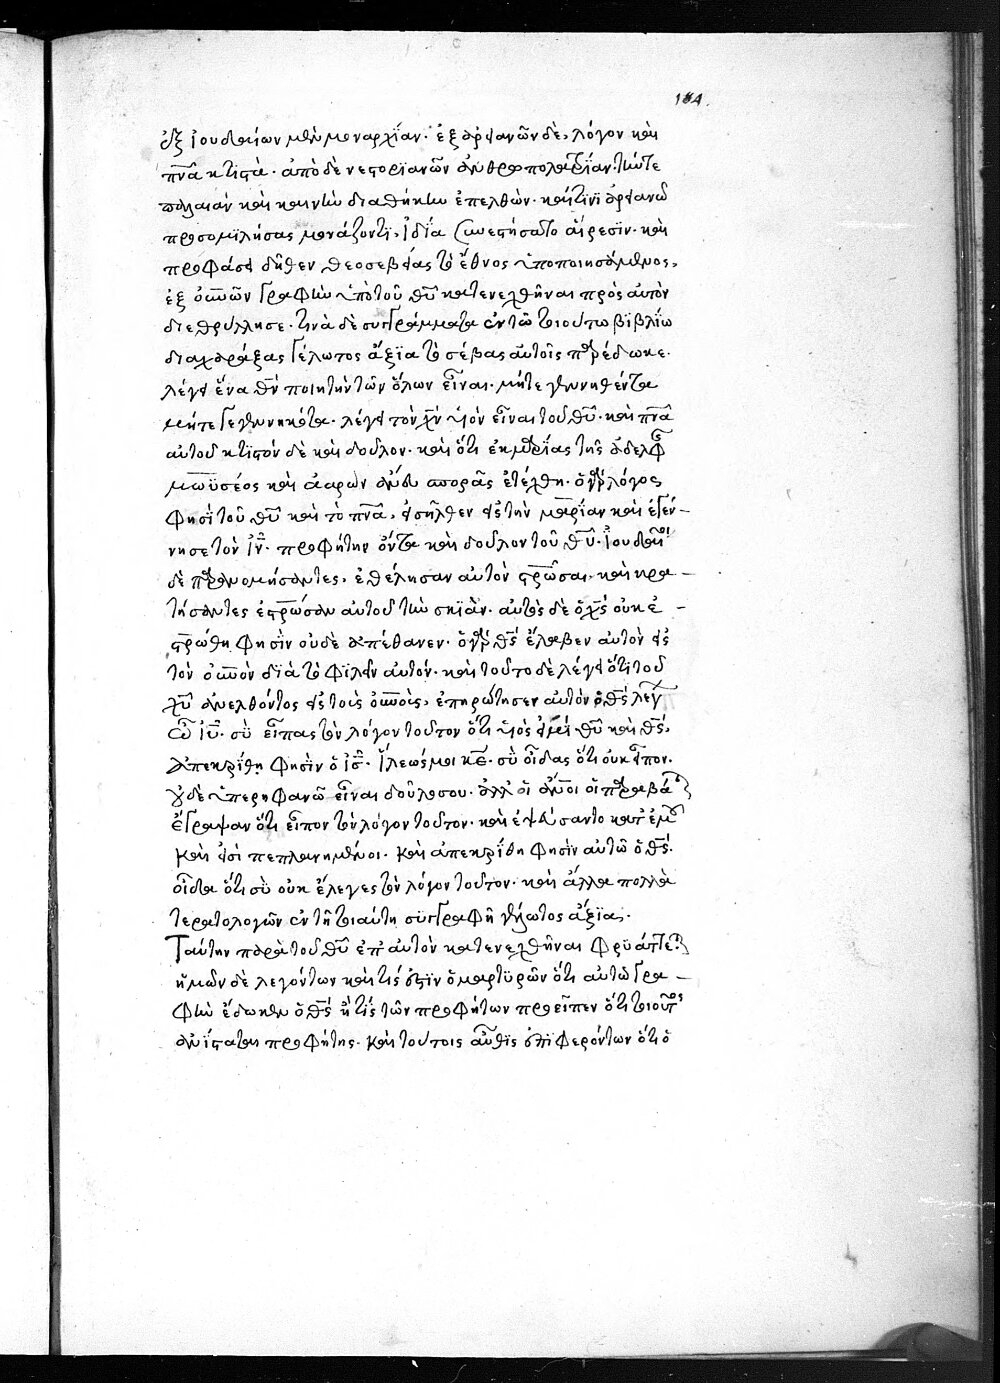 154.
ἐξ ἰουδαίων μὲν μοναρχΐαν· ἐξ ἀρειανῶν δὲ, λόγον καὶ
πν̅α κτιστὰ· ἀπὸ δὲ νεστορϊανῶν ἀνθρωπολατρΐαν· τήν τε
παλαιὰν καὶ καινὴν διαθήκην ἐπελθὼν· καί τινϊ ἀρειανῶ
προσομϊλήσας μονάζοντϊ, ἰδΐα συνεστήσατο αἵρεσϊν· καὶ
προφάσει δῆθεν θεοσεβείας τὸ ἔθνος ὑποποιησάμενος,
ἐξ οὐν̅ῶν γραφὴν ὑπὸ τοῦ θυ̅ κατενεχθῆναι πρὸς αὐτὸν
διεθρύλλησε· τινὰ δὲ συγγράμματα ἐν τῶ τοιούτω βϊβλΐω
διαχαράξας γέλωτος ἄξϊα τὸ σέβας αὐτοῖς παρέδωκε·
λέγει ἕνα θν̅ ποιητὴν τῶν ὅλων εἶναι· μήτε γεννηθέντα
μήτε γεγεννηκότα· λέγει τὸν χν̅ υἱὸν εἶναι τοῦ θυ̅· καὶ πν̅α
αὐτοῦ κτϊστὸν δὲ καὶ δοῦλον· καὶ ὅτι ἐκ μαρΐας τῆς ἀδελφῆς
μωϋσέος καὶ ἀαρὼν ἄνευ σπορᾶς ἐτέχθη· ὁ γὰρ λόγος
φησῒ τοῦ θυ̅ καὶ τὸ πν̅α, εἰσῆλθεν εἰς τὴν μαρΐαν καὶ ἐγέν-
νησε τὸν ιν̅· προφήτην ὄντα καὶ δοῦλον τοῦ θυ̅· ἰουδαῖοι
δὲ παρανομήσαντες, ἐθέλησαν αὐτὸν στρῶσαι· καὶ κρα-
τήσαντες ἐστρώσαν αὐτοῦ τὴν σκϊὰν· αὐτὸς δὲ ὁ χς̅ οὐκ ἐ-
στρώθη φησῒν οὐδὲ ἀπέθανεν· ὁ γὰρ θς̅ ἔλαβεν αὐτὸν εἰς
τὸν οὐν̅ὸν διὰ τὸ φϊλεῖν αὐτόν· καὶ τοῦτο δὲ λέγει ὅτι τοῦ
χυ̅ ἀνελθόντος εἰς τοὺς οὐν̅οὺς, ἐπηρώτησεν αὐτὸν ὁ θς̅ λέγων
ὦ ιυ̅· σὺ εἶπας τὸν λόγον τοῦτον ὅτι υἱὸς εἰμὶ θυ̅ καὶ θς̅,
ἀπεκρΐθη φησῒν ὁ ις̅· ἵλεώς μοι κε̅· σὺ οἶδας ὅτι οὐκ εἶπον·
οὐδὲ ὑπερηφανῶ εἶναι δοῦλος σου· ἀλλ' οἱ ἄνοι οἱ παραβάται
ἔγραψαν ὅτι εἶπον τὸν λόγον τοῦτον· καὶ ἐψεύσαντο κατ' ἐμοῦ
καὶ εἰσὶ πεπλανημένοι· καὶ ἀπεκρΐθη φησῒν αὐτῶ ὁ θς̅·
οἶδα ὅτι σὺ οὐκ ἔλεγες τὸν λόγον τοῦτον· καὶ ἄλλα πολλὰ
τερατολογῶν ἐν τῆ τοιαύτη συγγραφῆ γέλωτος ἄξϊα,
Ταύτην παρὰ τοῦ θυ̅ ἐπ' αὐτὸν κατενεχθῆναι φρυάττεται
ἡμῶν δὲ λεγόντων καὶ τίς ἐστϊν ὁ μαρτυρῶν ὅτι αὐτῶ γρα-
φὴν ἔδωκεν ὁ θς̅ ἢ τίς τῶν προφήτων προεῖπεν ὅτι τοιοῦτος
ἀνΐσταται προφήτης· καὶ τούτοις αὖθϊς ἐπϊφερόντων ὅτι ὁ